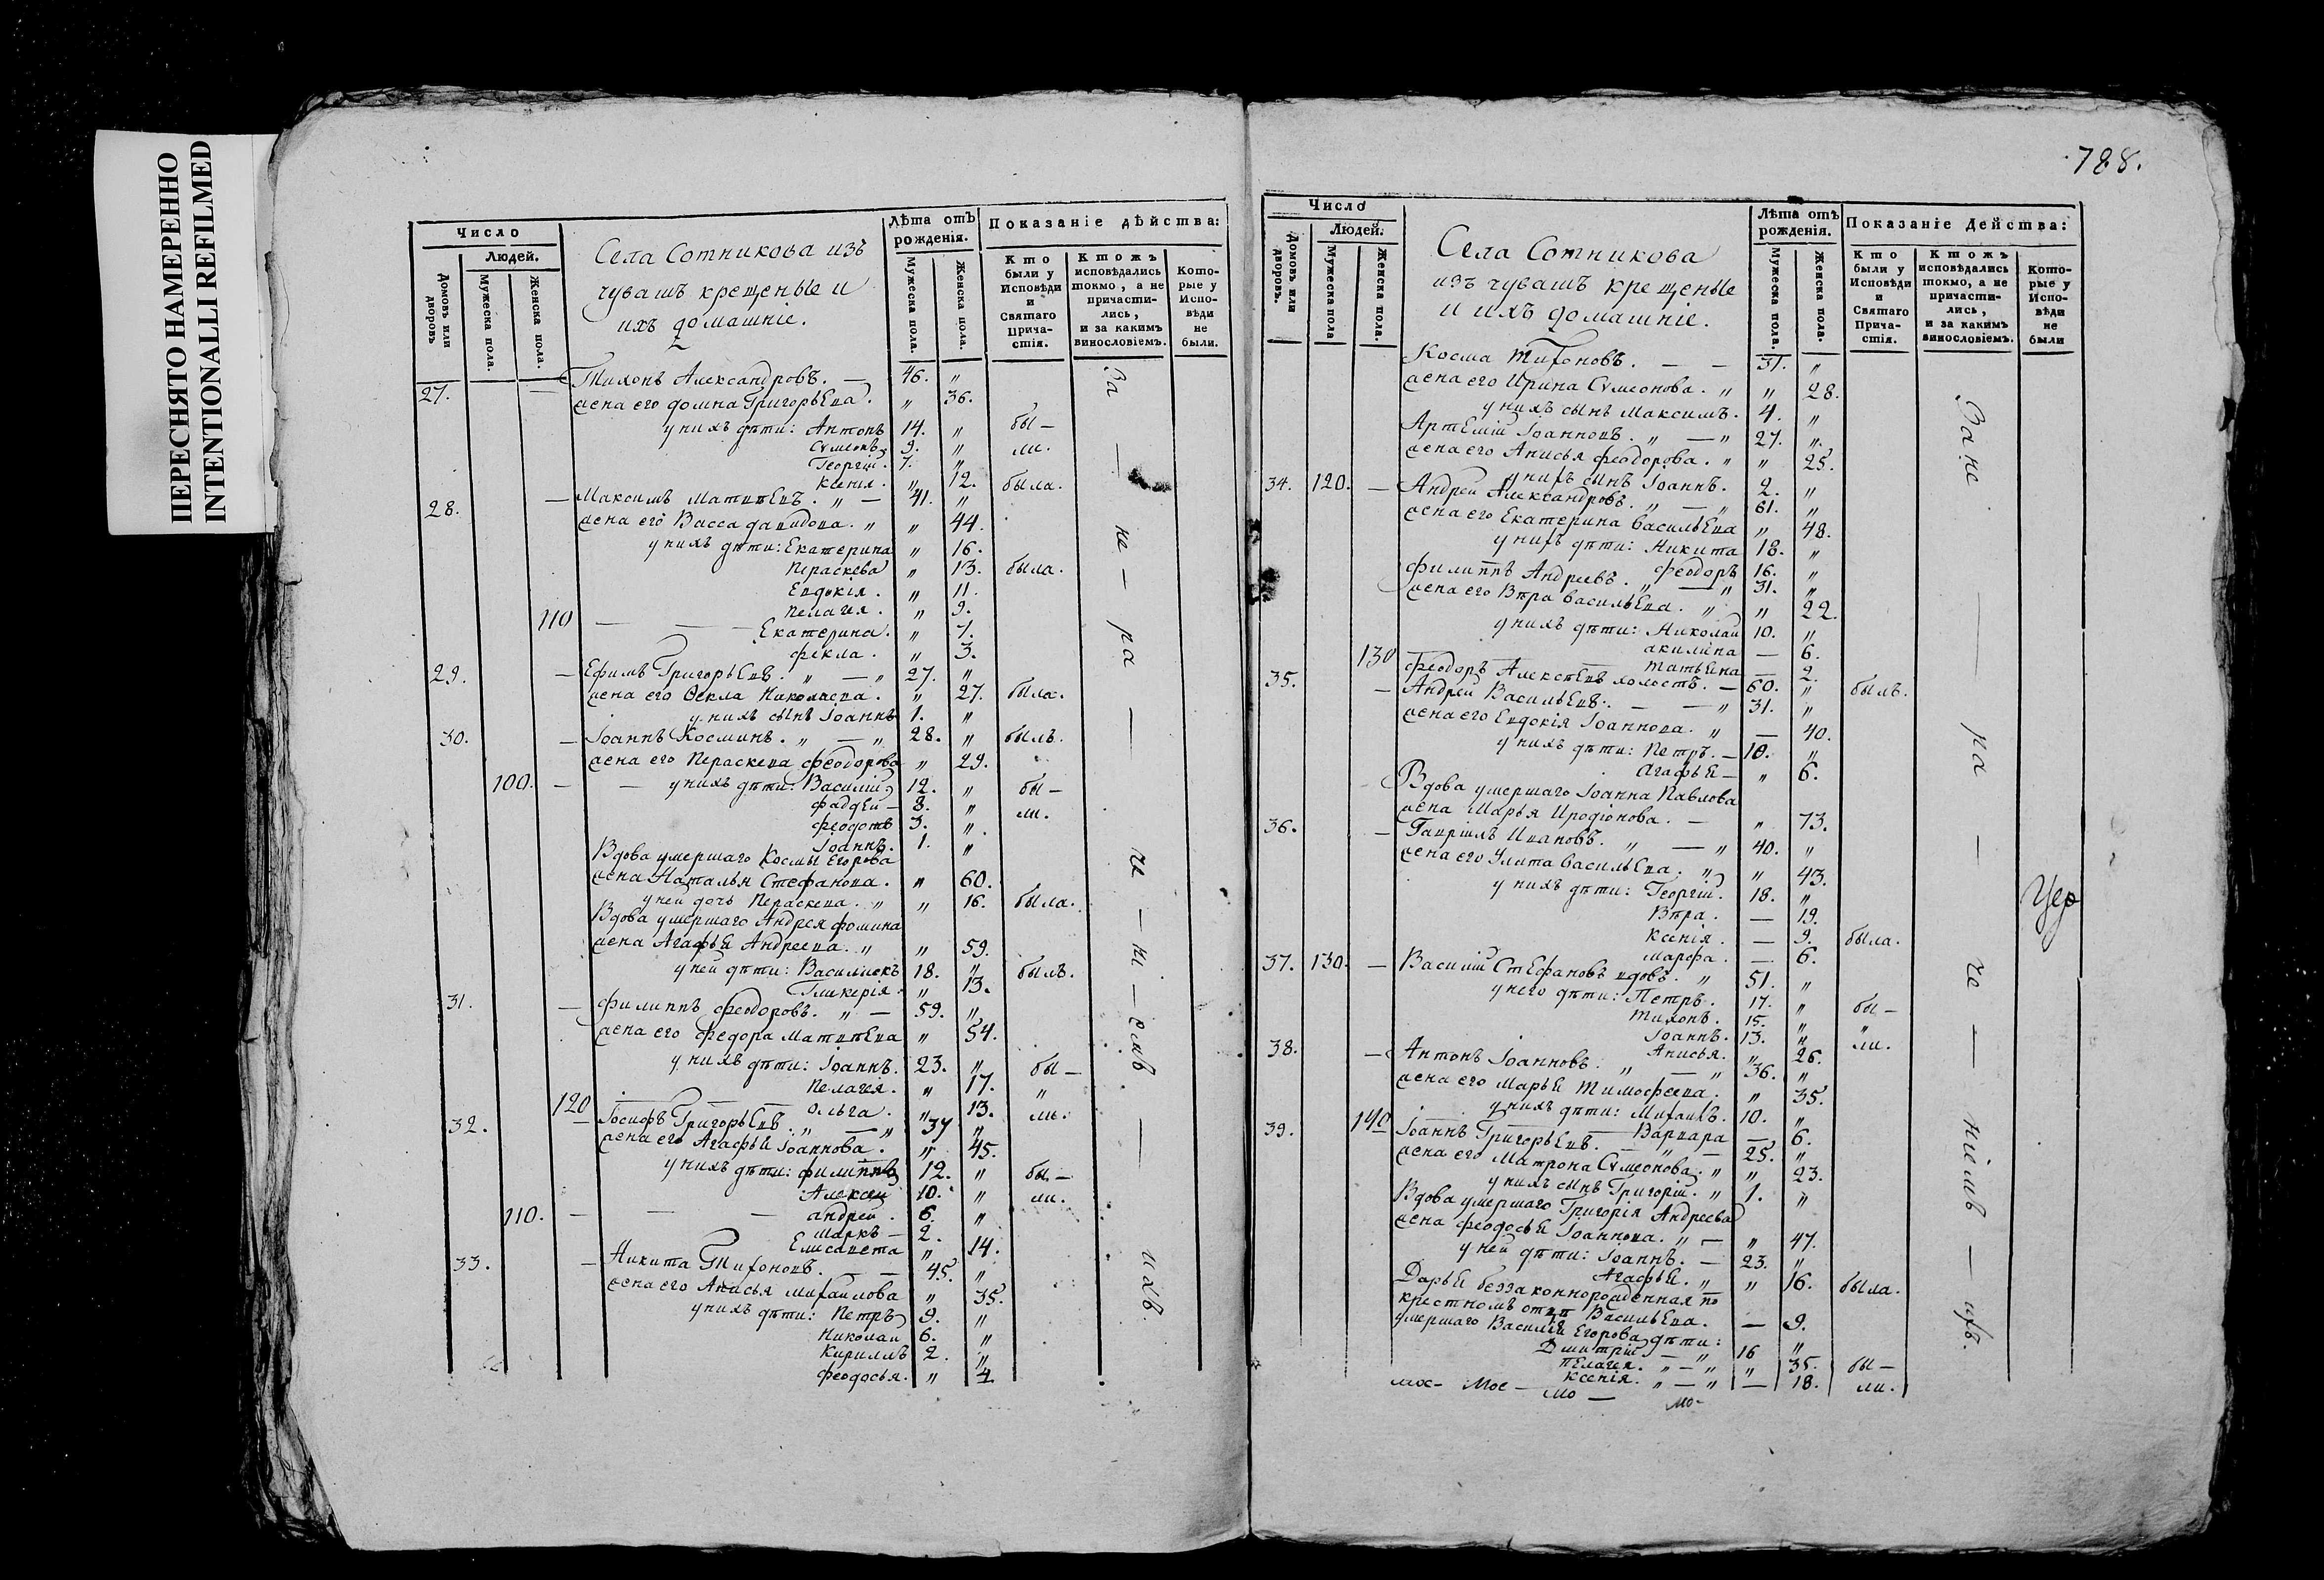 ПЕРЕСНЯТО НАМЕРЕННО
INTENTIONALLI REFILMED
Число
Людей.
Домовъ или дворовъ
Мужеска пола.
Женска пола.
Села Сотникова изъ
чувашъ крещеные и
ихъ домашніе.
Лѣта отъ рожденія.
Мужеска пола.
Женска пола.
Показаніе дѣйства:
Кто были у Исповѣди и Святаго Прича-стія.
Ктожъ исповѣдались токмо, а не причасти-лись, и за какимъ винословіемъ.
Кото-рые у Испо-вѣди не были.
27. Тихонъ Александровъ. — 46. "
жена его домна Григорьева. " 36.
у нихъ дѣти: Антонъ 14. " бы-
Сѵмеонъ 9. " ли.
Георгій. 7. "
Ксенія. " 12. была.
28. — Максимъ Матвѣевъ. " — 41. "
жена его Васса давидова. " " 44.
у нихъ дѣти: Екатерина " 16.
Параскева " 13. была.
Евдокія. " 11.
Пелагея. " 9.
110 — — Екатерина. " 7.
Фекла. " 3.
29. — Ефимъ Григорьевъ. " — " 27. "
жена его Ѳекла Николаева. " 27. была.
у нихъ сынъ Іоаннъ 1. "
30. — Іоаннъ Косминъ. " — " 28. " былъ.
жена его Пераскева Феодорова " 29.
100. — — у нихъ дѣти: Василій 12. " бы-
Фаддей — 8. " ли.
Феодотъ 3. "
Іоаннъ. 1. "
Вдова умершаго Космы Егорова
жена Наталья Стефанова. " 60.
у ней дочь Пераскева. " " 16. была.
Вдова умершаго Андрея Фомина
жена Агафья Андреева. " " 59.
у ней дѣти: Василискъ 18. " былъ.
Гликерія. " 13.
31. — Филиппъ Феодоровъ. " — 59. "
жена его Федора Матвѣева " 54.
у нихъ дѣти: Іоаннъ. 23. " бы-
Пелагея. " 17. "
120 — — Ольга. " 13. ли.
32. — Іосифъ Григорьевъ. " — " 37 "
жена его Агафья Іоаннова. " 45.
у нихъ дѣти: Филиппъ 12. " бы-
Алексей 10. " ли.
110. — — — андрей. 6. "
Маркъ — 2.
Елисавета " 14.
33. — Никита Тихоновъ. — — 45. "
жена его Анисья Михаилова " 35.
у нихъ дѣти: Петръ 9. "
Николаи 6. "
Кириллъ 2. "
Феодосья. " 4
За — не — ра — че — ні — емъ — ихъ.
788.
Число
Людей.
Домовъ или дворовъ.
Мужеска пола
Женска пола.
Села Сотникова
изъ чувашъ крещеные
и ихъ домашніе.
Лѣта отъ рожденія.
Мужеска пола.
Женска пола.
Показаніе Действа:
Кто были у Исповѣди и Святаго Прича-стія.
Ктожъ исповѣдались токмо, а не причасти-лись, и за какимъ винословіемъ.
Кото-рые у Испо-вѣди не были
Косма Тихоновъ. — — 31. "
жена его Ирина Сѵмеонова. " " 28.
у нихъ сынъ Максимъ. 4. "
Артемій Іоанновъ. " — " 27. "
жена его Анисья Феодорова. " " 25.
у нихъ сынъ Іоаннъ. 2. "
34. 120. — Андрей Александровъ. " — " 61. "
жена его Екатерина Васильева " 48.
у нихъ дѣти: Никита 18. "
Феодоръ 16. "
Филиппъ Андреевъ. " — " 31. "
жена его Вѣра Васильева. " " 22.
у нихъ дѣти: Николаи 10. "
акилина — 6.
130 — Татьяна — 2.
35. Феодоръ Алексѣевъ холостъ. — 60. " былъ.
— Андрей Васильевъ. — — " 31. "
жена его Евдокія Іоаннова. " — 40.
у нихъ дѣти: Петръ. — 10. "
Агафья — " 6.
Вдова умершаго Іоанна Павлова
жена Марья Иродіонова. — " 73.
36. — Гавріилъ Ивановъ. " — " 40. "
жена его Улита Васильева. " " 43.
у нихъ дѣти: Георгій. 18. "
Вѣра. — 19.
Ксенія. — 9. была.
Марфа. — 6.
37. 130. — Василій Стефановъ вдовъ. " 51. "
у него дѣти: Петръ. 17. " бы-
Тихонъ. 15. " "
Іоаннъ. 13. " ли.
Анисья. " 26.
38. — Антонъ Іоанновъ. " — " 36. "
жена его Марья Тимофеева. " 35.
у нихъ дѣти: Михаилъ. 10. "
140 — Варвара — 6.
39. Іоаннъ Григорьевъ. — " — 25. "
жена его Матрона Сѵмеонова. " " 23.
у нихъ сынъ Григорій. " 1. "
Вдова умершаго Григорія Андреева
жена Феодосья Іоаннова. " — " 47.
у ней дѣти: Іоаннъ. — 23. "
Агафья. " " 16. была.
Дарья беззаконнорожденная по
крестномъ отцѣ Васильева. — 9.
умершаго Василья Егорова дѣти:
Дмитрій — " 16 "
Пелагея. " — " " 35. бы-
Ксенія. " — " — 18. ли.
За не — ра — че — ніемъ — ихъ.
Цер